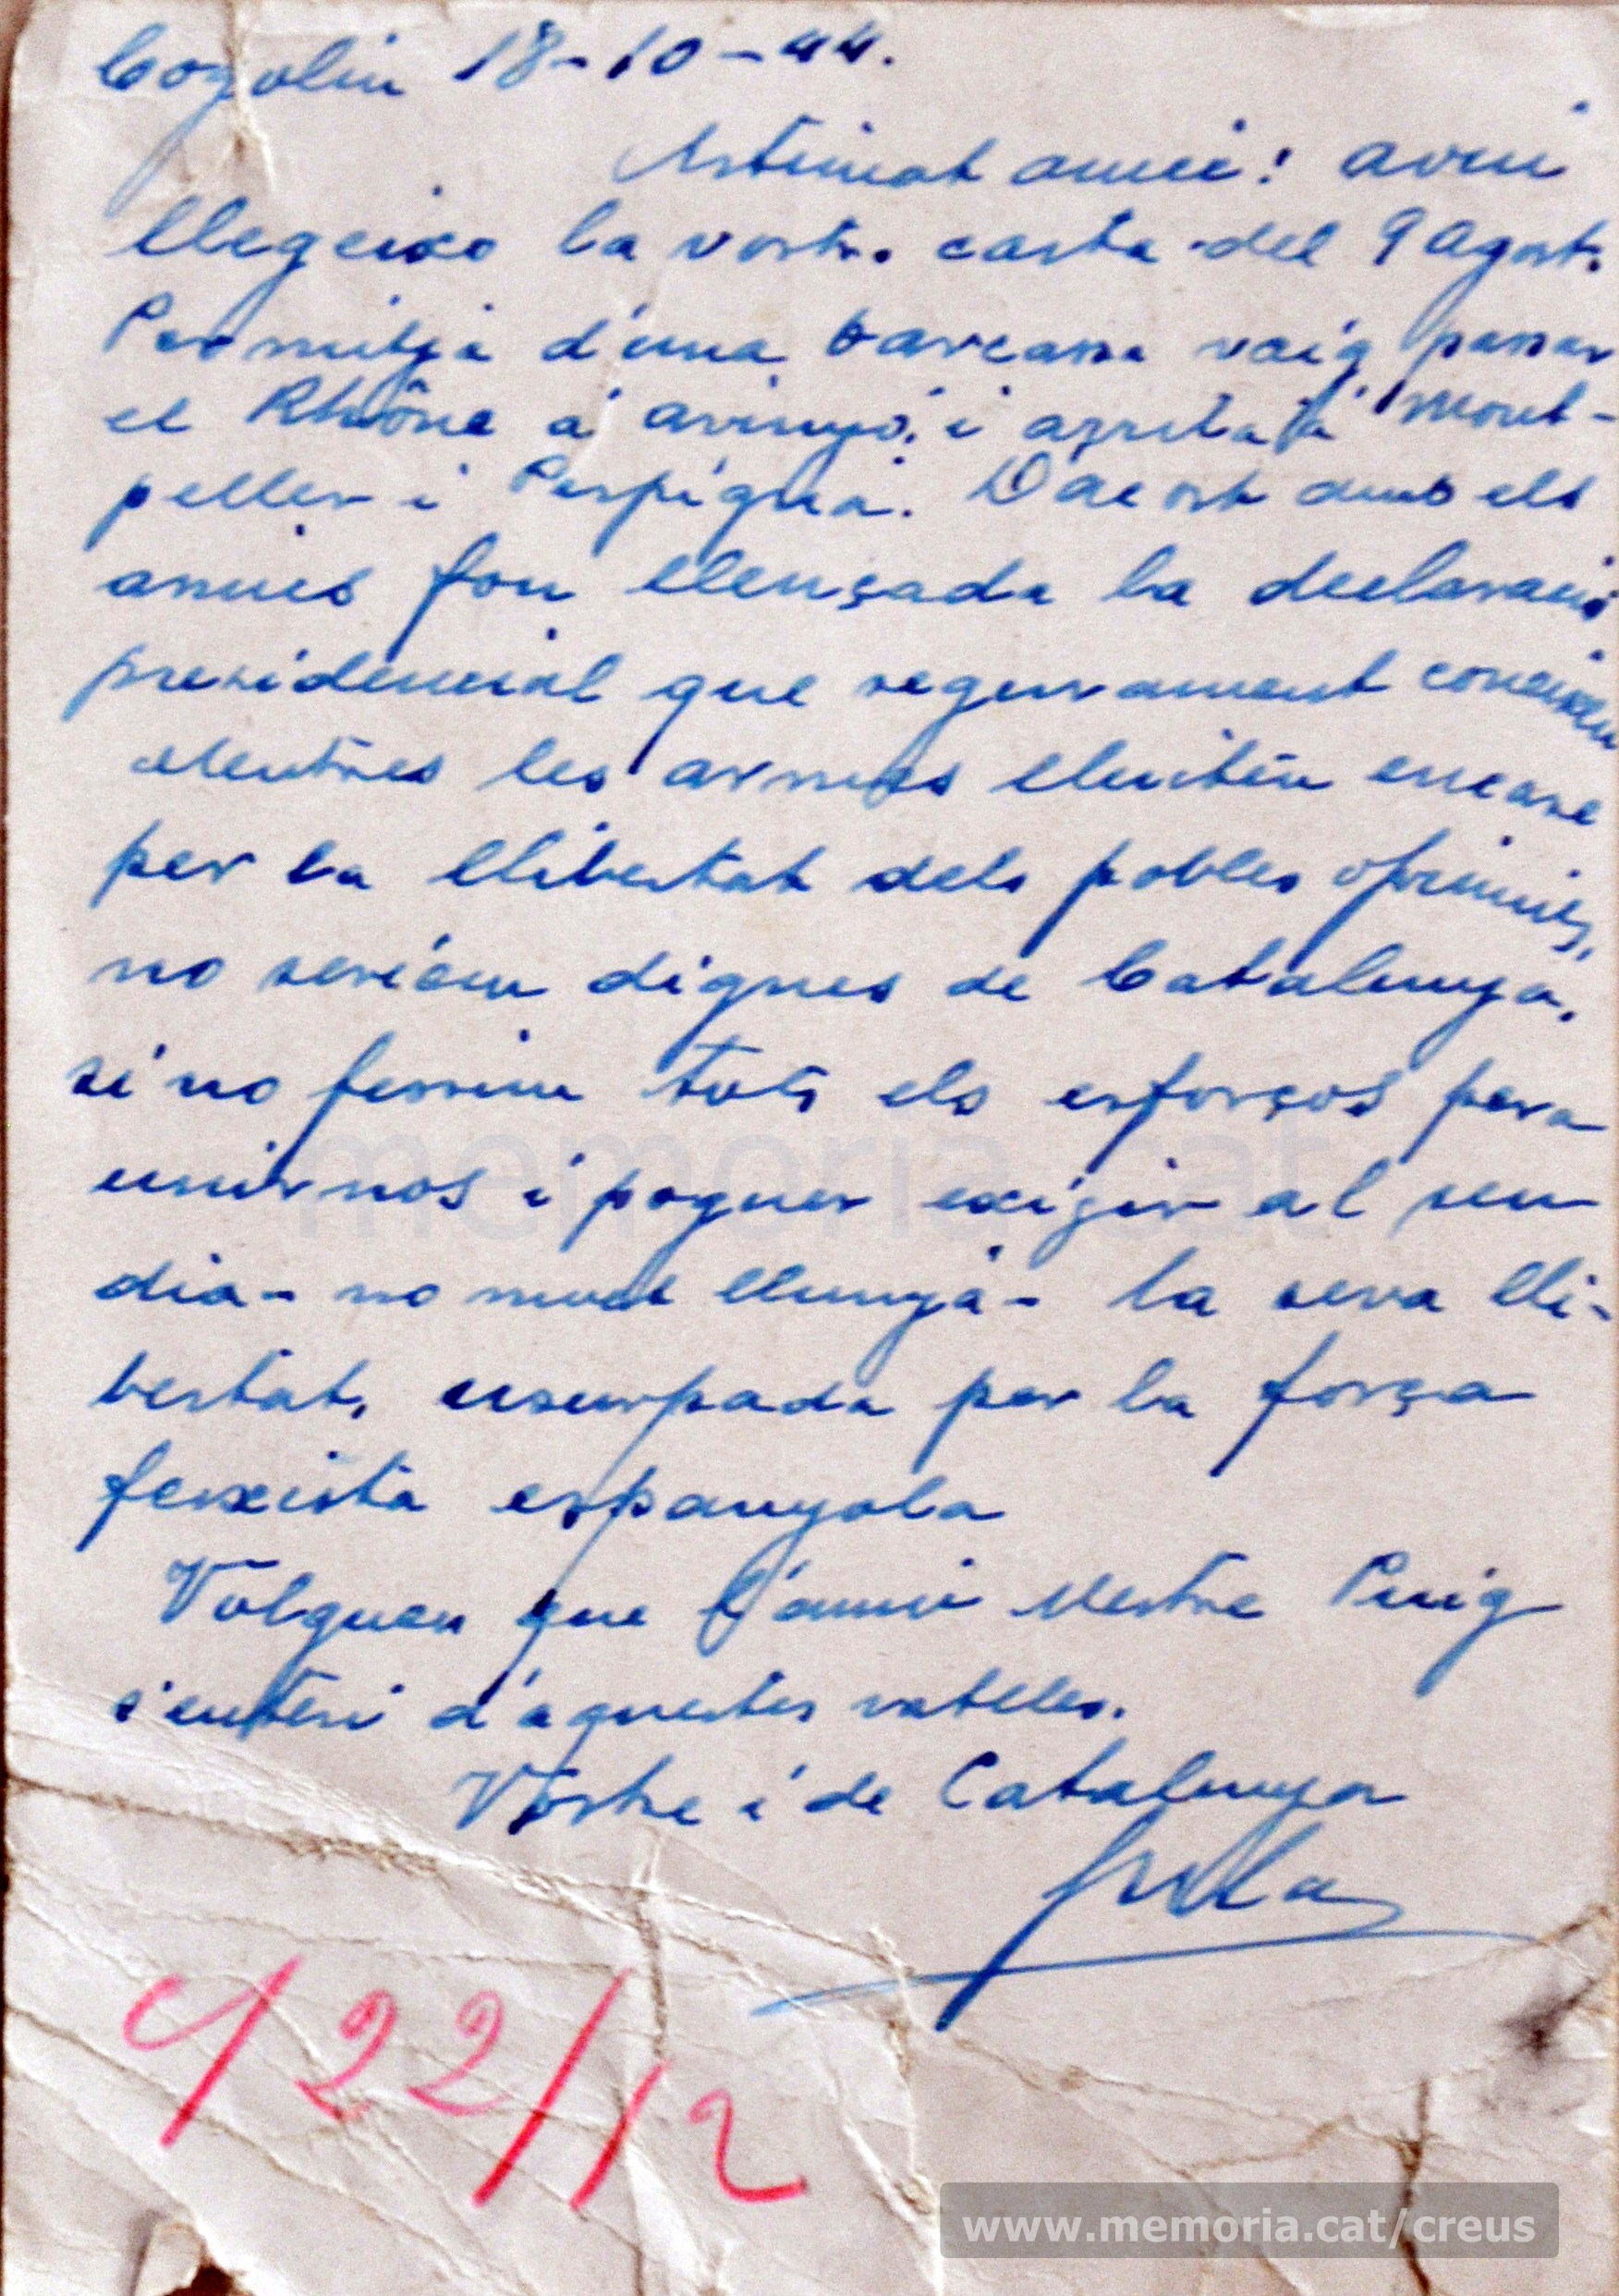 Cogolin 18-10-44.
Astimat amic: avui
llegeixo la vostr. carta del 9 Agost.
Per mitja d'una barcassa vaig passar
el Rhône a avinyó, i a Mont-
peller i Perpignà. D'acort amb els
amics fou llençada la declaració
presidencial que segurament coneixeu
Mentres les armes lluitin encare
per la llibertat dels pobles oprimits,
no seriem dignes de Catalunya,
si no fessim tots els esforços pera
unirnos i poguer exigir al seu
dia - no molt llunyá - la seva lli-
bertat, usurpada per la força
feixista espanyola
Volgueu que l'amic Mestre Puig
s'enteri d'aquestes ratlles.
Vostre i de Catalunya
922/12
memoria.cat
www.memoria.cat/creus